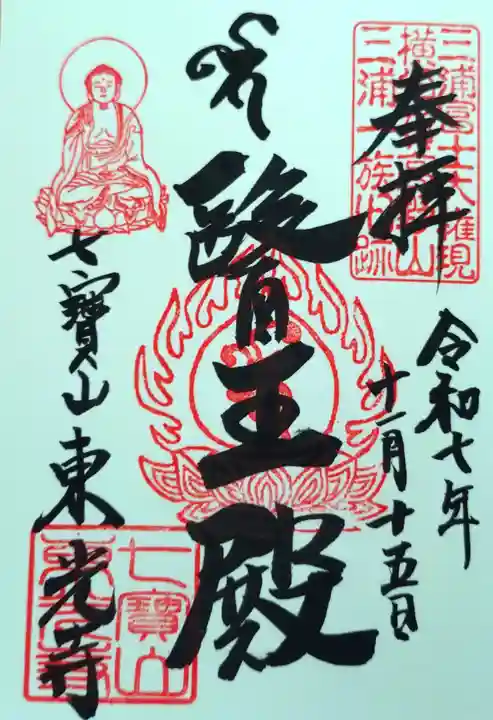 奉拝
令和七年
十一月十五日
醫王殿
七寶山
東光寺
三浦冨士大権現
三浦一族旧跡
七寶山
東光寺